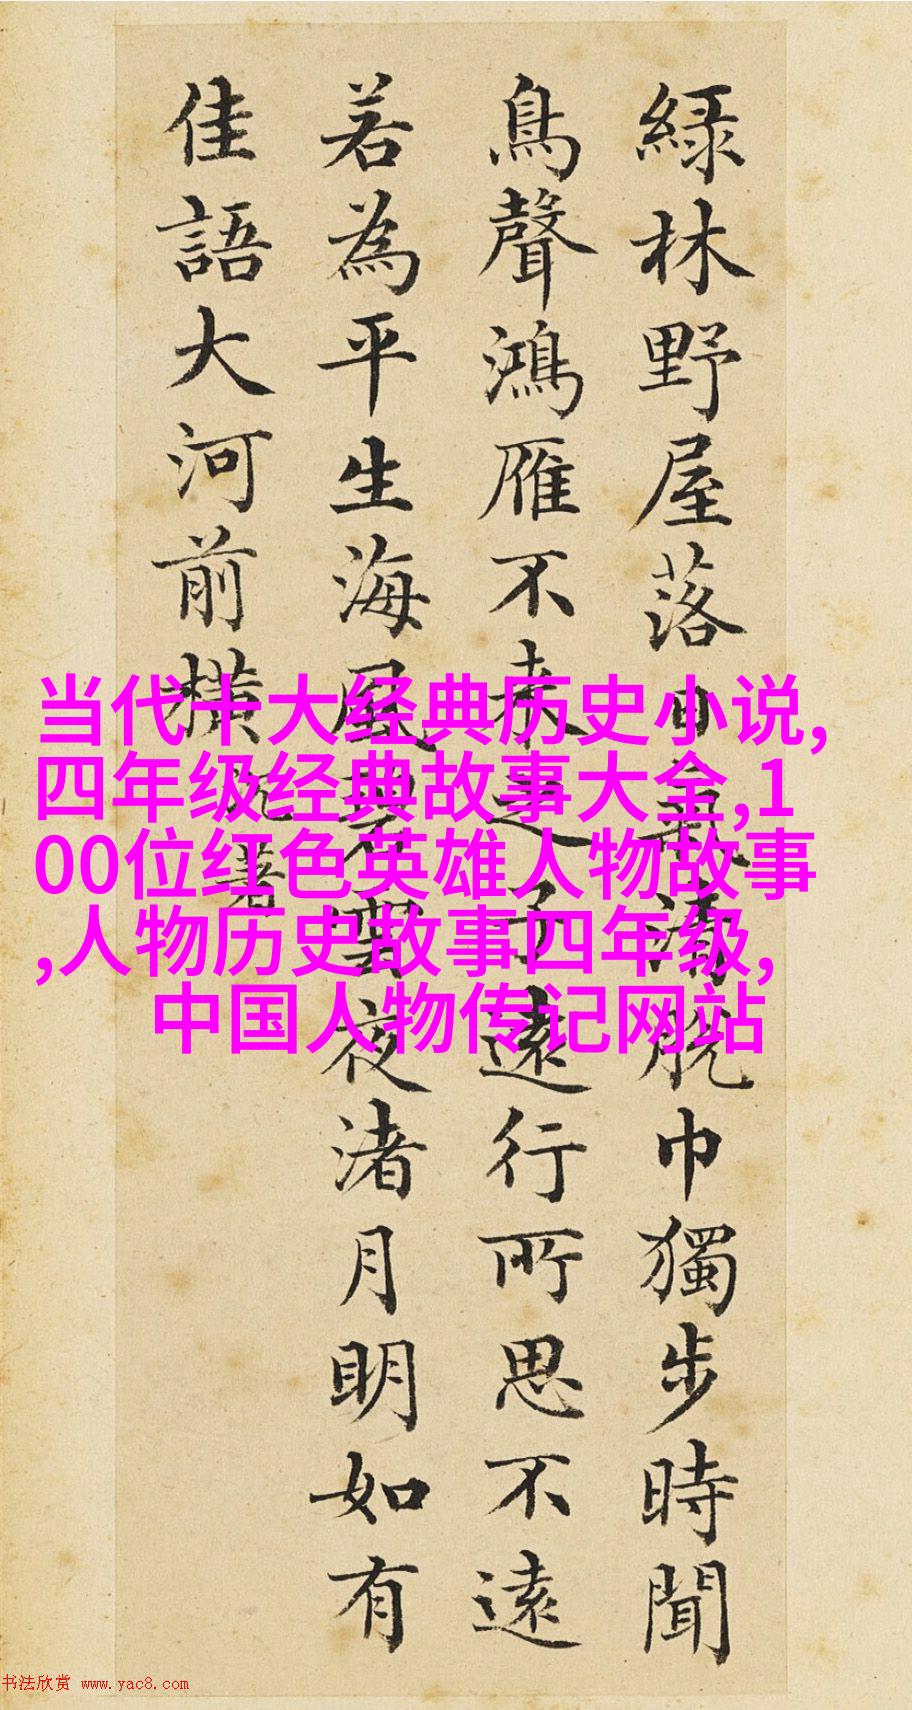 綠林野屋落日氣清脫巾獨步時聞
鳥聲鴻雁不來之子遠行所思不遠
若為平生海風碧雲夜渚月明如有
佳語大河前橫 沈著
当代十大经典历史小说,
四年级经典故事大全,1
00位红色英雄人物故事
,人物历史故事四年级,
中国人物传记网站
书法欣赏 www.yac8.com